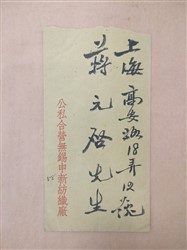 上海高安路18弄12號
蔣元啓先生
公私合營無錫申新紡織廠